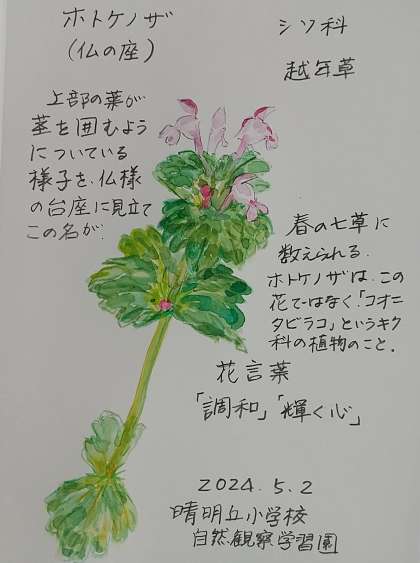 ホトケノザ
(仏の座)
シソ科
越年草
上部の葉が
茎を囲むよう
についている
様子を、仏様
の台座に見立て
この名が
春の七草に
数えられる
ホトケノザは、この
花ではなく「コオニ
タビラコ」というキク
科の植物のこと.
花言葉
「調和」「輝く心」
2024.5.2
晴明丘小学校
自然観察学習園